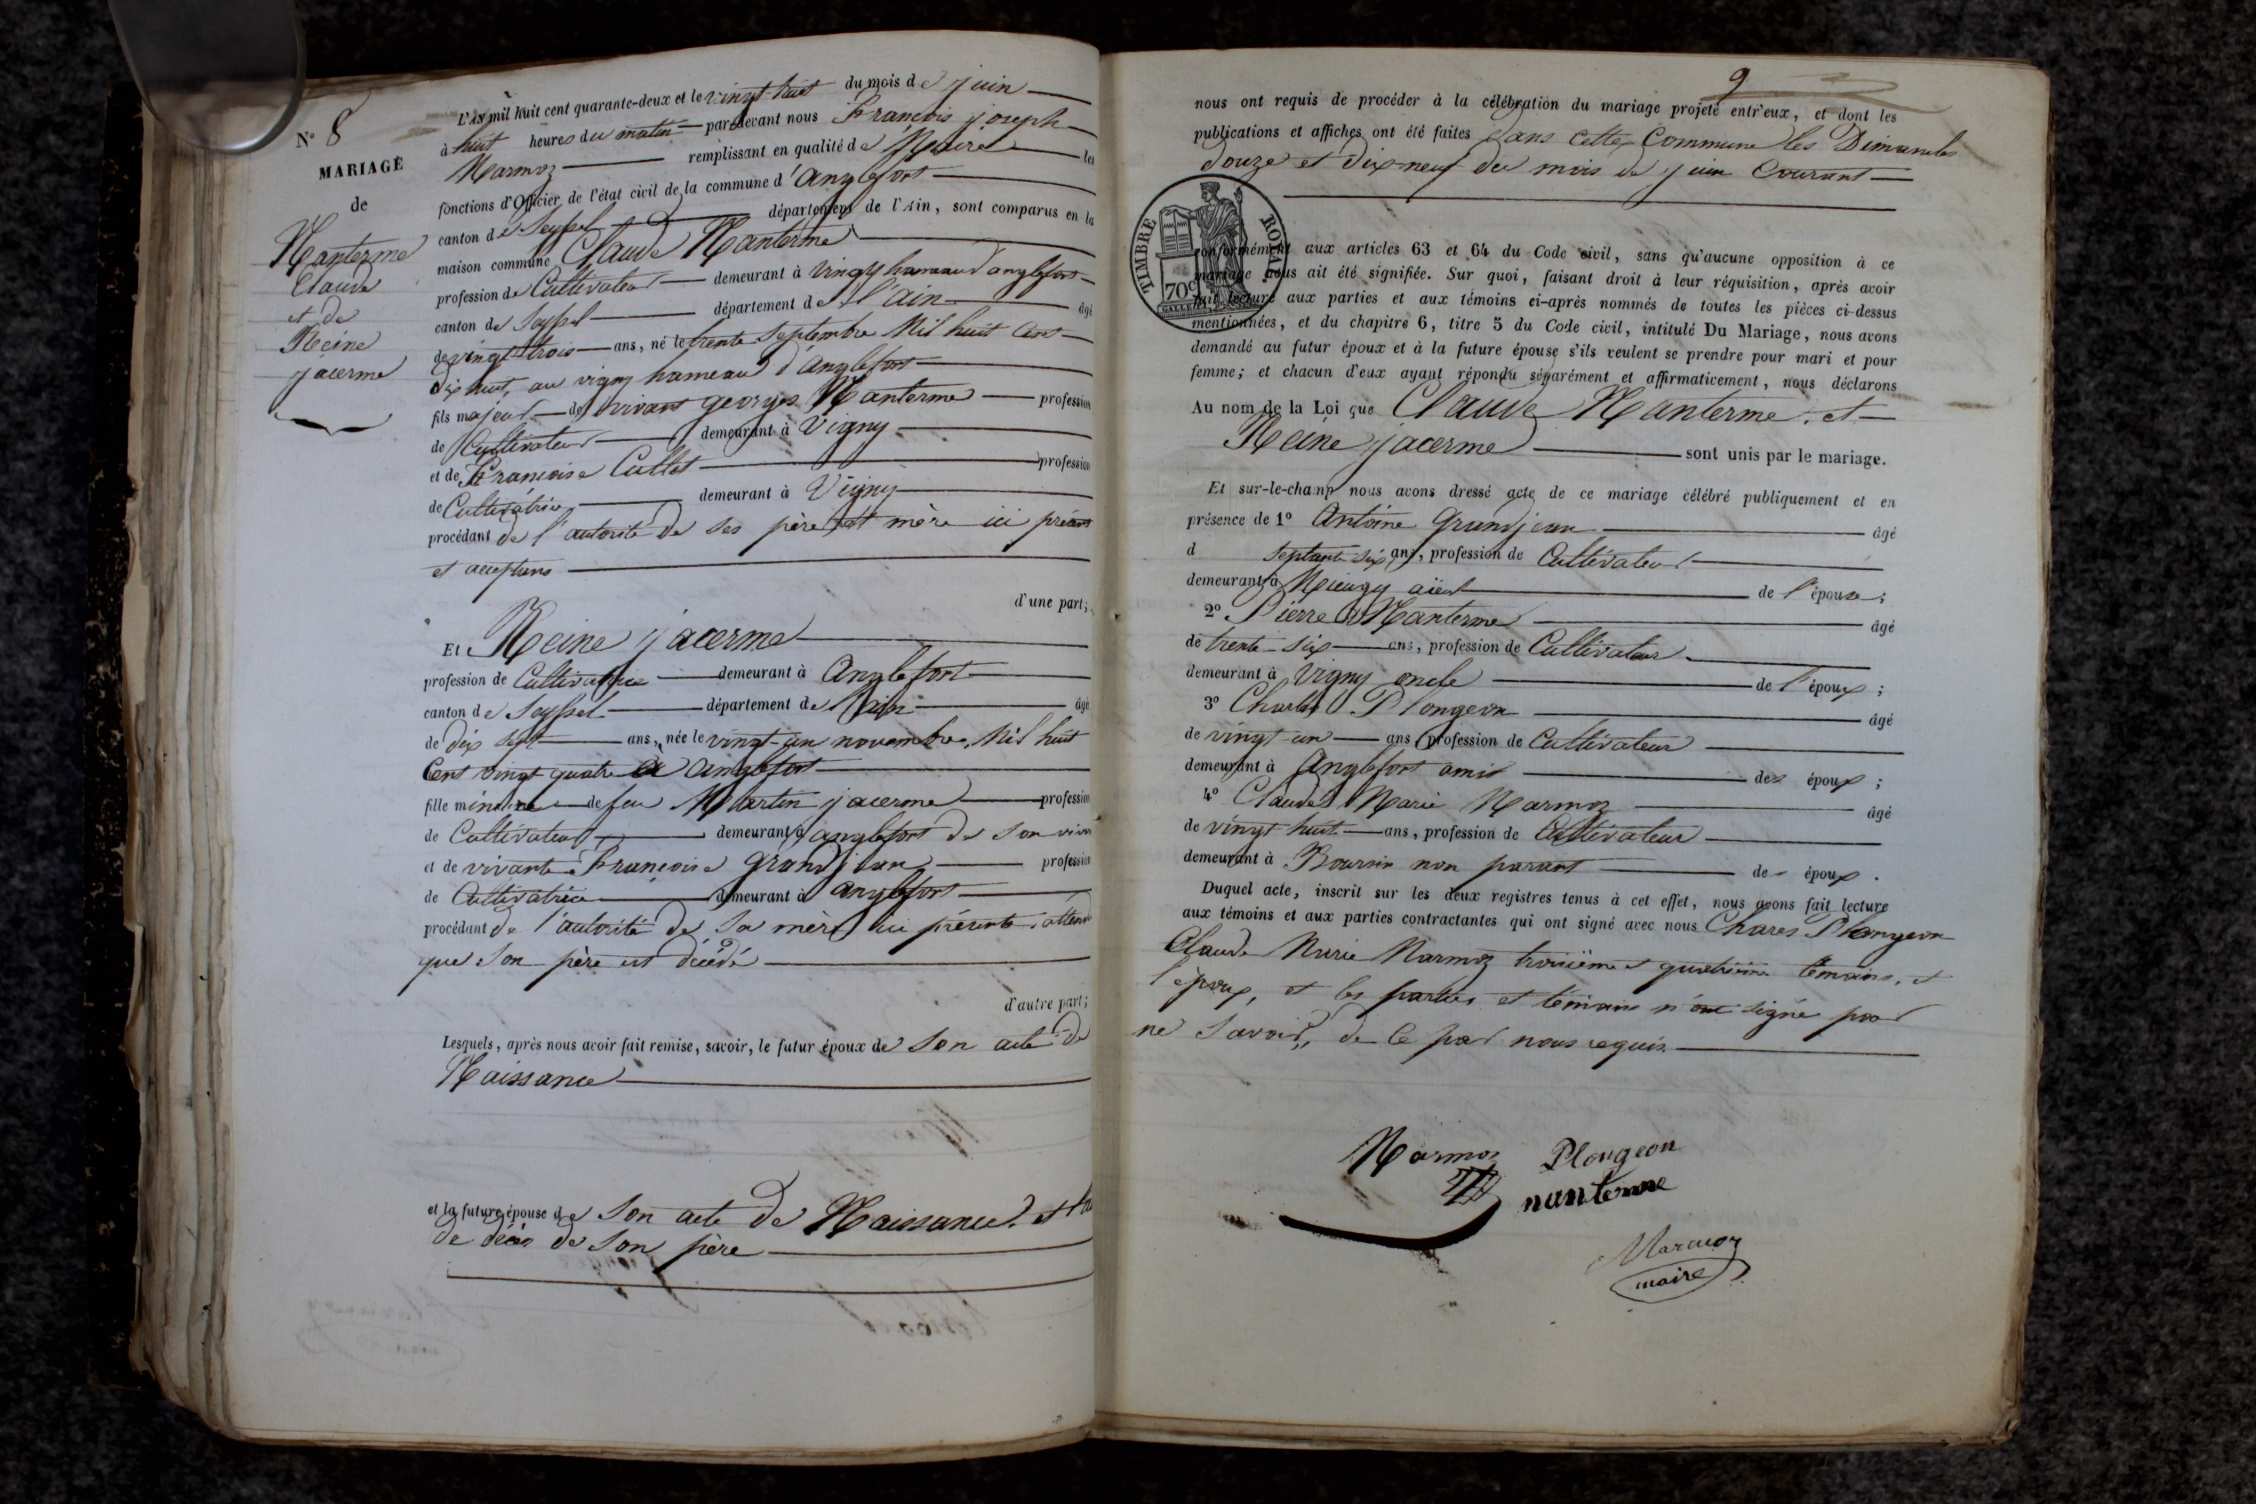 N° 8
MARIAGE
de
Nanterme
Claude
et de
Reine
jacerme
L'AN mil huit cent quarante-deux et le vingt huit du mois de juin
à huit heures du matin pardevant nous François joseph
Marmoz remplissant en qualité de Maire les
fonctions d'Officier de l'état civil de la commune d'anglefort
canton de Seyssel département de l'Ain, sont comparus en la
maison commune Claude Nanterme
profession de Cultivateur demeurant à Vingy hameau d'anglefort
canton de Seyssel département de l'ain âgé
de vingt trois ans, né le trente Septembre Mil huit Cent
dix huit, au vigny hameau d'anglefort
fils majeur de vivant georges Nanterme profession
de Cultivateur demeurant à Vigny
et de Françoise Cullet profession
de Cultivatrice demeurant à Vigny
procédant de l'autorité de ses père et mère ici présent
et acceptans
d'une part;
Et Reine jacerme
profession de Cultivatrice demeurant à Anglefort
canton de Seyssel département de l'ain âgé
de dix sept ans, née le vingt-un novembre Mil huit
Cent vingt quatre à anglefort
fille mineure de feu Martin jacerme profession
de Cultivateur demeurant à anglefort de son viva
et de vivante Françoise grandjean profession
de Cultivatrice demeurant à anglefort
procédant de l'autorité de Sa mère ici présente, attend
que Son père est décédé
d'autre part;
Lesquels, après nous avoir fait remise, savoir, le futur époux de Son acte de
Naissance
et la future épouse de Son acte de Naissance et
de décès de Son père
9
nous ont requis de procéder à la célébration du mariage projeté entr'eux, et dont les
publications et affiches ont été faites dans cette Commune les Dimanches
douze et dix neuf du mois de juin Courant
TIMBRE ROYAL
70c
conformément aux articles 63 et 64 du Code civil, sans qu'aucune opposition à ce
mariage nous ait été signifiée. Sur quoi, faisant droit à leur réquisition, après avoir
fait lecture aux parties et aux témoins ci-après nommés de toutes les pièces ci-dessus
mentionnées, et du chapitre 6, titre 5 du Code civil, intitulé Du Mariage, nous avons
demandé au futur époux et à la future épouse s'ils veulent se prendre pour mari et pour
femme; et chacun d'eux ayant répondu séparément et affirmativement, nous déclarons
Au nom de la Loi que Claude Nanterme et
Reine jacerme sont unis par le mariage.
Et sur-le-champ nous avons dressé acte de ce mariage célébré publiquement et en
présence de 1° Antoine Grandjean âgé
d septante six ans, profession de Cultivateur
demeurant à Mieugy aïeul de l'épouse;
2° Pierre Nanterme âgé
de trente-six ans, profession de Cultivateur
demeurant à Vigny oncle de l'époux;
3° Charles Plongeon âgé
de vingt un ans, profession de Cultivateur
demeurant à Anglefort amis des époux;
4° Claude Marie Marmoz âgé
de vingt huit ans, profession de Cultivateur
demeurant à Boursin non parant des époux.
Duquel acte, inscrit sur les deux registres tenus à cet effet, nous avons fait lecture
aux témoins et aux parties contractantes qui ont signé avec nous Chares Plongeon
Claude Marie Marmoz troisième et quatrième témoins, et
l'époux, et les parties et témoins n'ont signé pour
ne Savoir, de Ce par nous requis.
Marmoz Plongeon
nanterme
Marmoz
maire